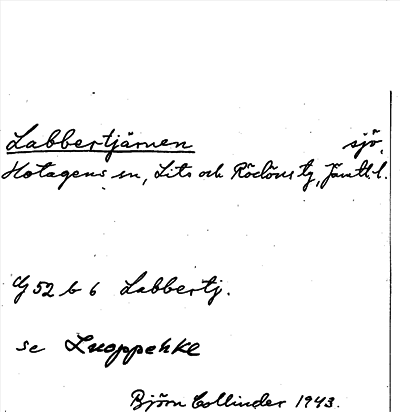 Labbertjärnen sjö,
Hotagens sn, Lits och Rödöns tg, Jämtl. l.
G 52 b 6 Labbertj.
se Luoppehke
Björn Collinder 1943.